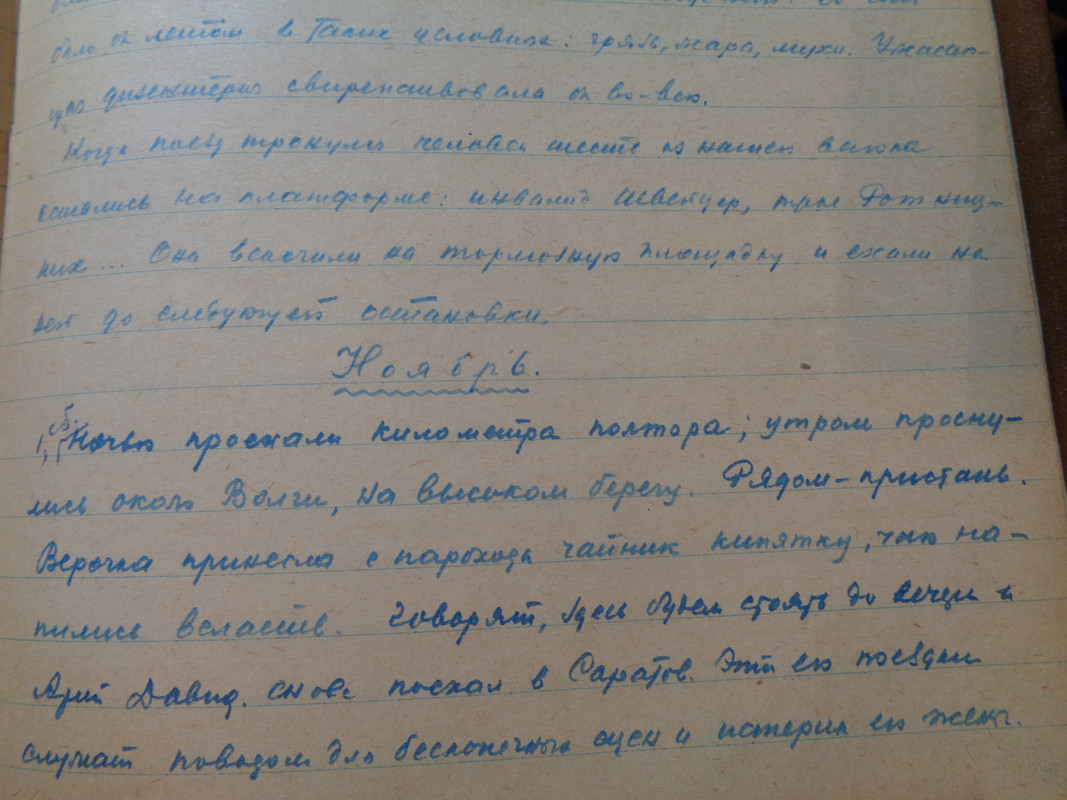 было бы летом в таких условиях: грязь, жара, мухи. Ужасаю-
щая дизентерия свирепствовала бы во-всю.
Когда поезд тронулся человек шесть из нашего вагона
остались на платформе: инвалид Швейцер, трое
них... Они вскочили на тормозную площадку и ехали на
ней до следующей остановки.
Ноябрь.
1, сб. Ночью проехали километра полтора; утром просну-
лись около Волги, на высоком берегу. Рядом – пристань.
Верочка принесла с парохода чайник кипятку, чаю на-
пились всласть. Говорят, здесь будем стоять до вечера и
Арий Давид. снова поехал в Саратов. Эти его поездки
служат поводом для бесконечных сцен и истерик его жены.